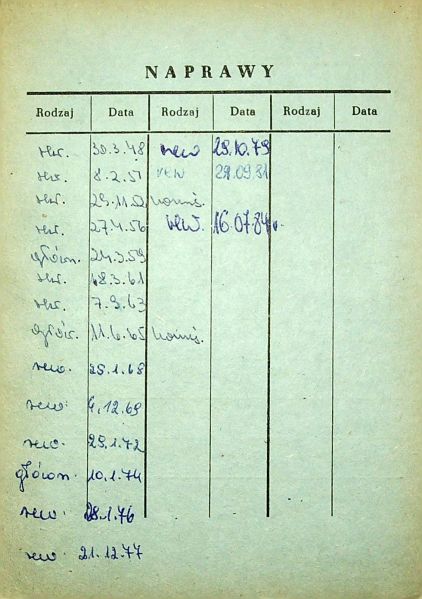 NAPRAWY
Rodzaj Data Rodzaj Data Rodzaj Data
rew. 30.3.48 rew 29.10.79
rew. 8.2.51 rew 29.09.81
rew. 29.11.52 komis.
rew. 27.4.56 rew. 16.07.84r.
główn. 24.3.59
rew. 18.3.61
rew. 7.9.63
głów. 11.6.65 komis.
rew. 25.1.68
rew. 4.12.69
rew. 29.1.72
główn. 10.1.74
rew 28.1.76
rew. 21.12.77